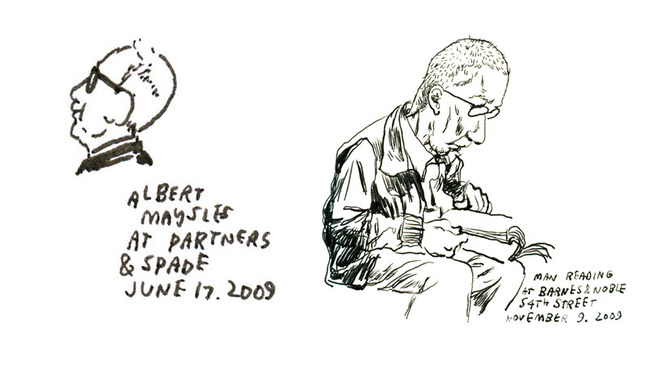 ALBERT
MAYSLES
AT PARTNERS
& SPADE
JUNE 17. 2009
MAN READING
AT BARNES & NOBLE
54TH STREET
NOVEMBER 9. 2009